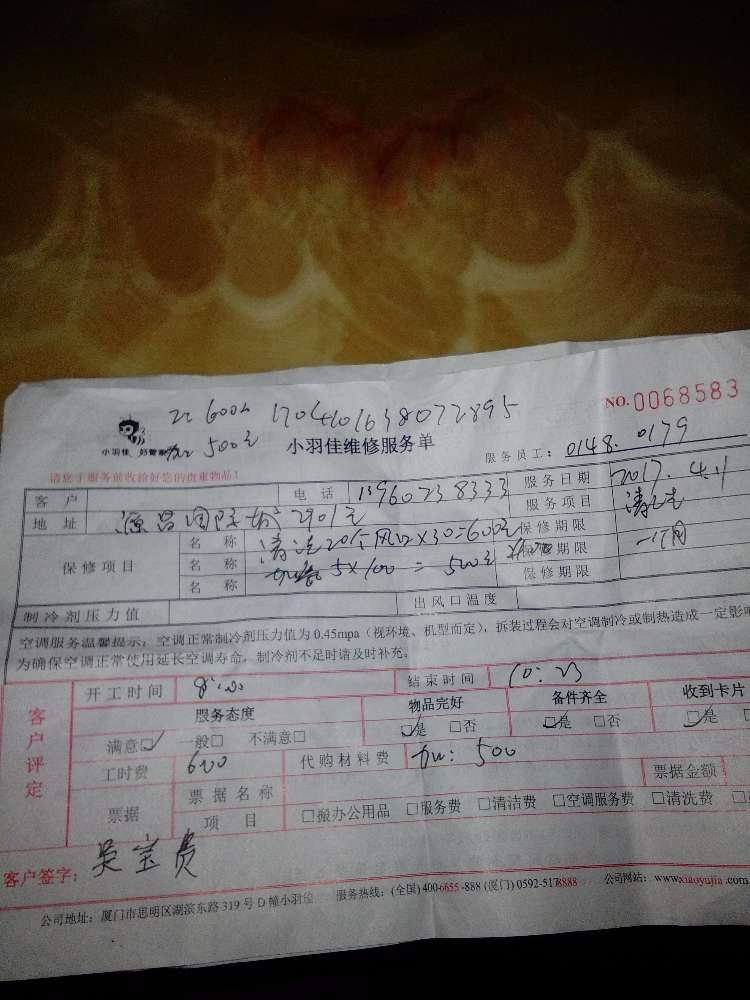 600 1704101638072895
NO.0068583
小羽佳 好管家 加 500元 小羽佳维修服务单
服务员工：0148. 0179
请您于服务前收拾好您的贵重物品！
客户 电话 13960238333 服务日期 2017.4.11
地址 源昌国际城2901 服务项目 清洗
保修项目 名称 清洗20个风口×30=600元 保修期限
名称 5×100=500元 保修期限 一个月
名称 保修期限
制冷剂压力值 出风口温度
空调服务温馨提示：空调正常制冷剂压力值为 0.45mpa（视环境、机型而定），拆装过程会对空调制冷或制热造成一定影响
为确保空调正常使用延长空调寿命，制冷剂不足时请及时补充。
客户评定
开工时间 8:00 结束时间 10:23
服务态度 物品完好 备件齐全 收到卡片
满意☑ 一般□ 不满意□ ☑是 □否 ☑是 □否 ☑是
工时费 600 代购材料费 加: 500
票据 票据名称 票据金额
项目 □搬办公用品 □服务费 □清洁费 □空调服务费 □清洗费
客户签字：吴宝贵
公司地址：厦门市思明区湖滨东路 319 号 D 幢小羽佳 服务热线：(全国) 400-6655-888 (厦门) 0592-5178888 公司网站：www.xiaoyujia.com